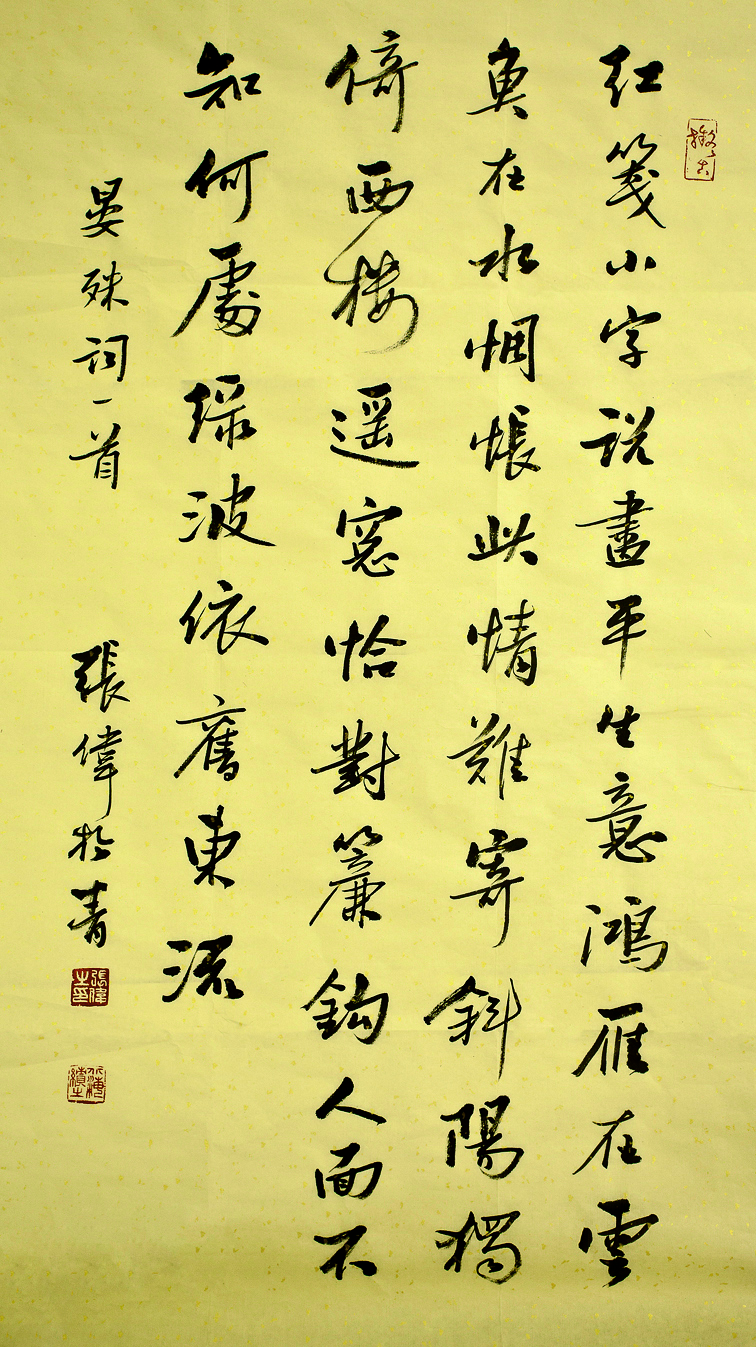 紅箋小字説畫平生意鴻雁在雲
魚在水惆悵此情難寄斜陽獨
倚西樓遥窓恰對簾鈎人面不
知何處緑波依舊東流
晏殊詞一首
張偉於青
張偉之印